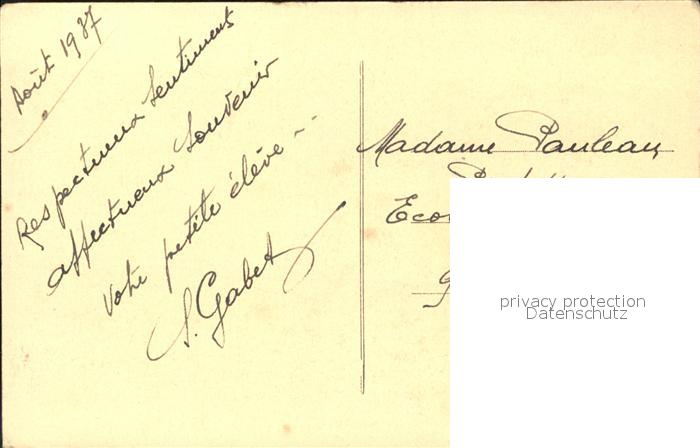 Août 1937
Respectueux sentiments
affectueux souvenir
Votre petite élève
S. Gabet
Madame Pauleau
privacy protection
Datenschutz